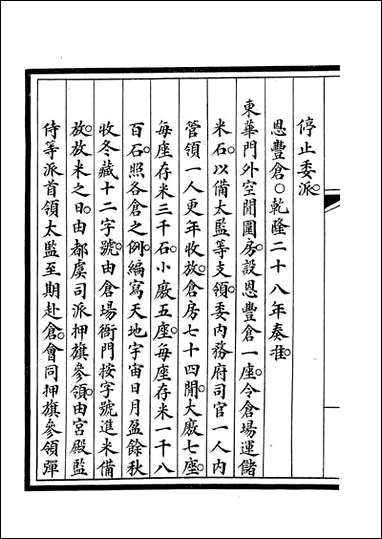 停止委派。
恩豐倉○乾隆二十八年奏准。
東華門外空閒圍房設恩豐倉一座。令倉場運儲
米石。以備太監等支領。委內務府司官一人內
管領一人更年收放。倉房七十四閒。大廠七座。
每座存米三千石。小廠五座。每座存米一千八
百石。照各倉之例。編寫天地宇宙日月盈餘秋
收冬藏十二字號。由倉場衙門按字號進米備
放。放米之日。由都虞司派押旗參領。由宮殿監
侍等派首領太監至期赴倉。會同押旗參領彈